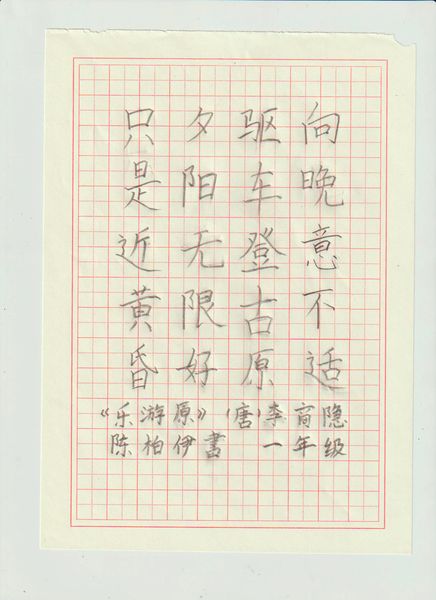 向晚意不适
驱车登古原
夕阳无限好
只是近黄昏
《乐游原》(唐)李商隐
陈柏伊書 一年级